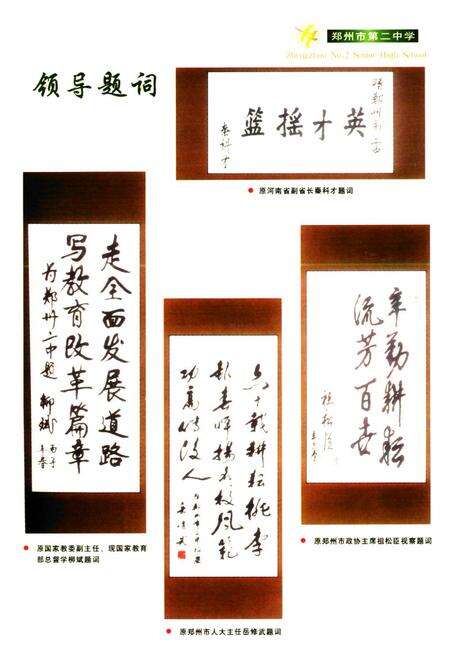 郑州市第二中学
Zhengzhou No.2 Senior High School
领导题词
赠郑州市二中
英才摇篮
秦科才
原河南省副省长秦科才题词
走全面发展道路
写教育改革篇章
为郑州二中题 柳斌
原国家教委副主任、现国家教育
部总督学柳斌题词
六十载耕耘桃李
功高传后人
岳修武
原郑州市人大主任岳修武题词
辛勤耕耘
流芳百世
祖松臣
原郑州市政协主席祖松臣视察题词